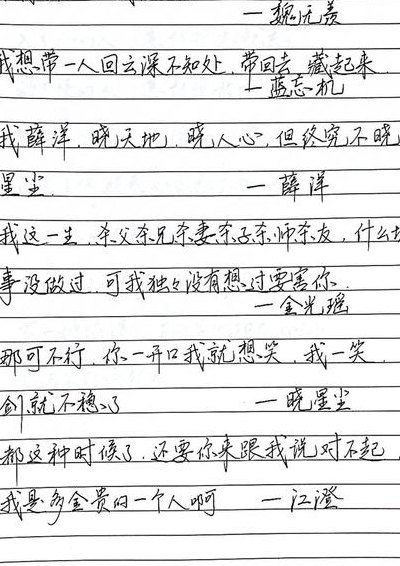 —魏无羡
我想带一人回云深不知处,带回去 藏起来.
—蓝忘机
我薛洋,晓天地,晓人心,但终究不晓
星尘.	—薛洋
我这一生,杀父杀兄杀妻杀子杀师杀友,什么坏
事没做过,可我独々没有想过要害你.
—金光瑶
那可不行,你一开口我就想笑,我一笑,
剑就不稳了	—晓星尘
都这种时候了,还要你来跟我说对不起,
我是多金贵的一个人啊	—江澄